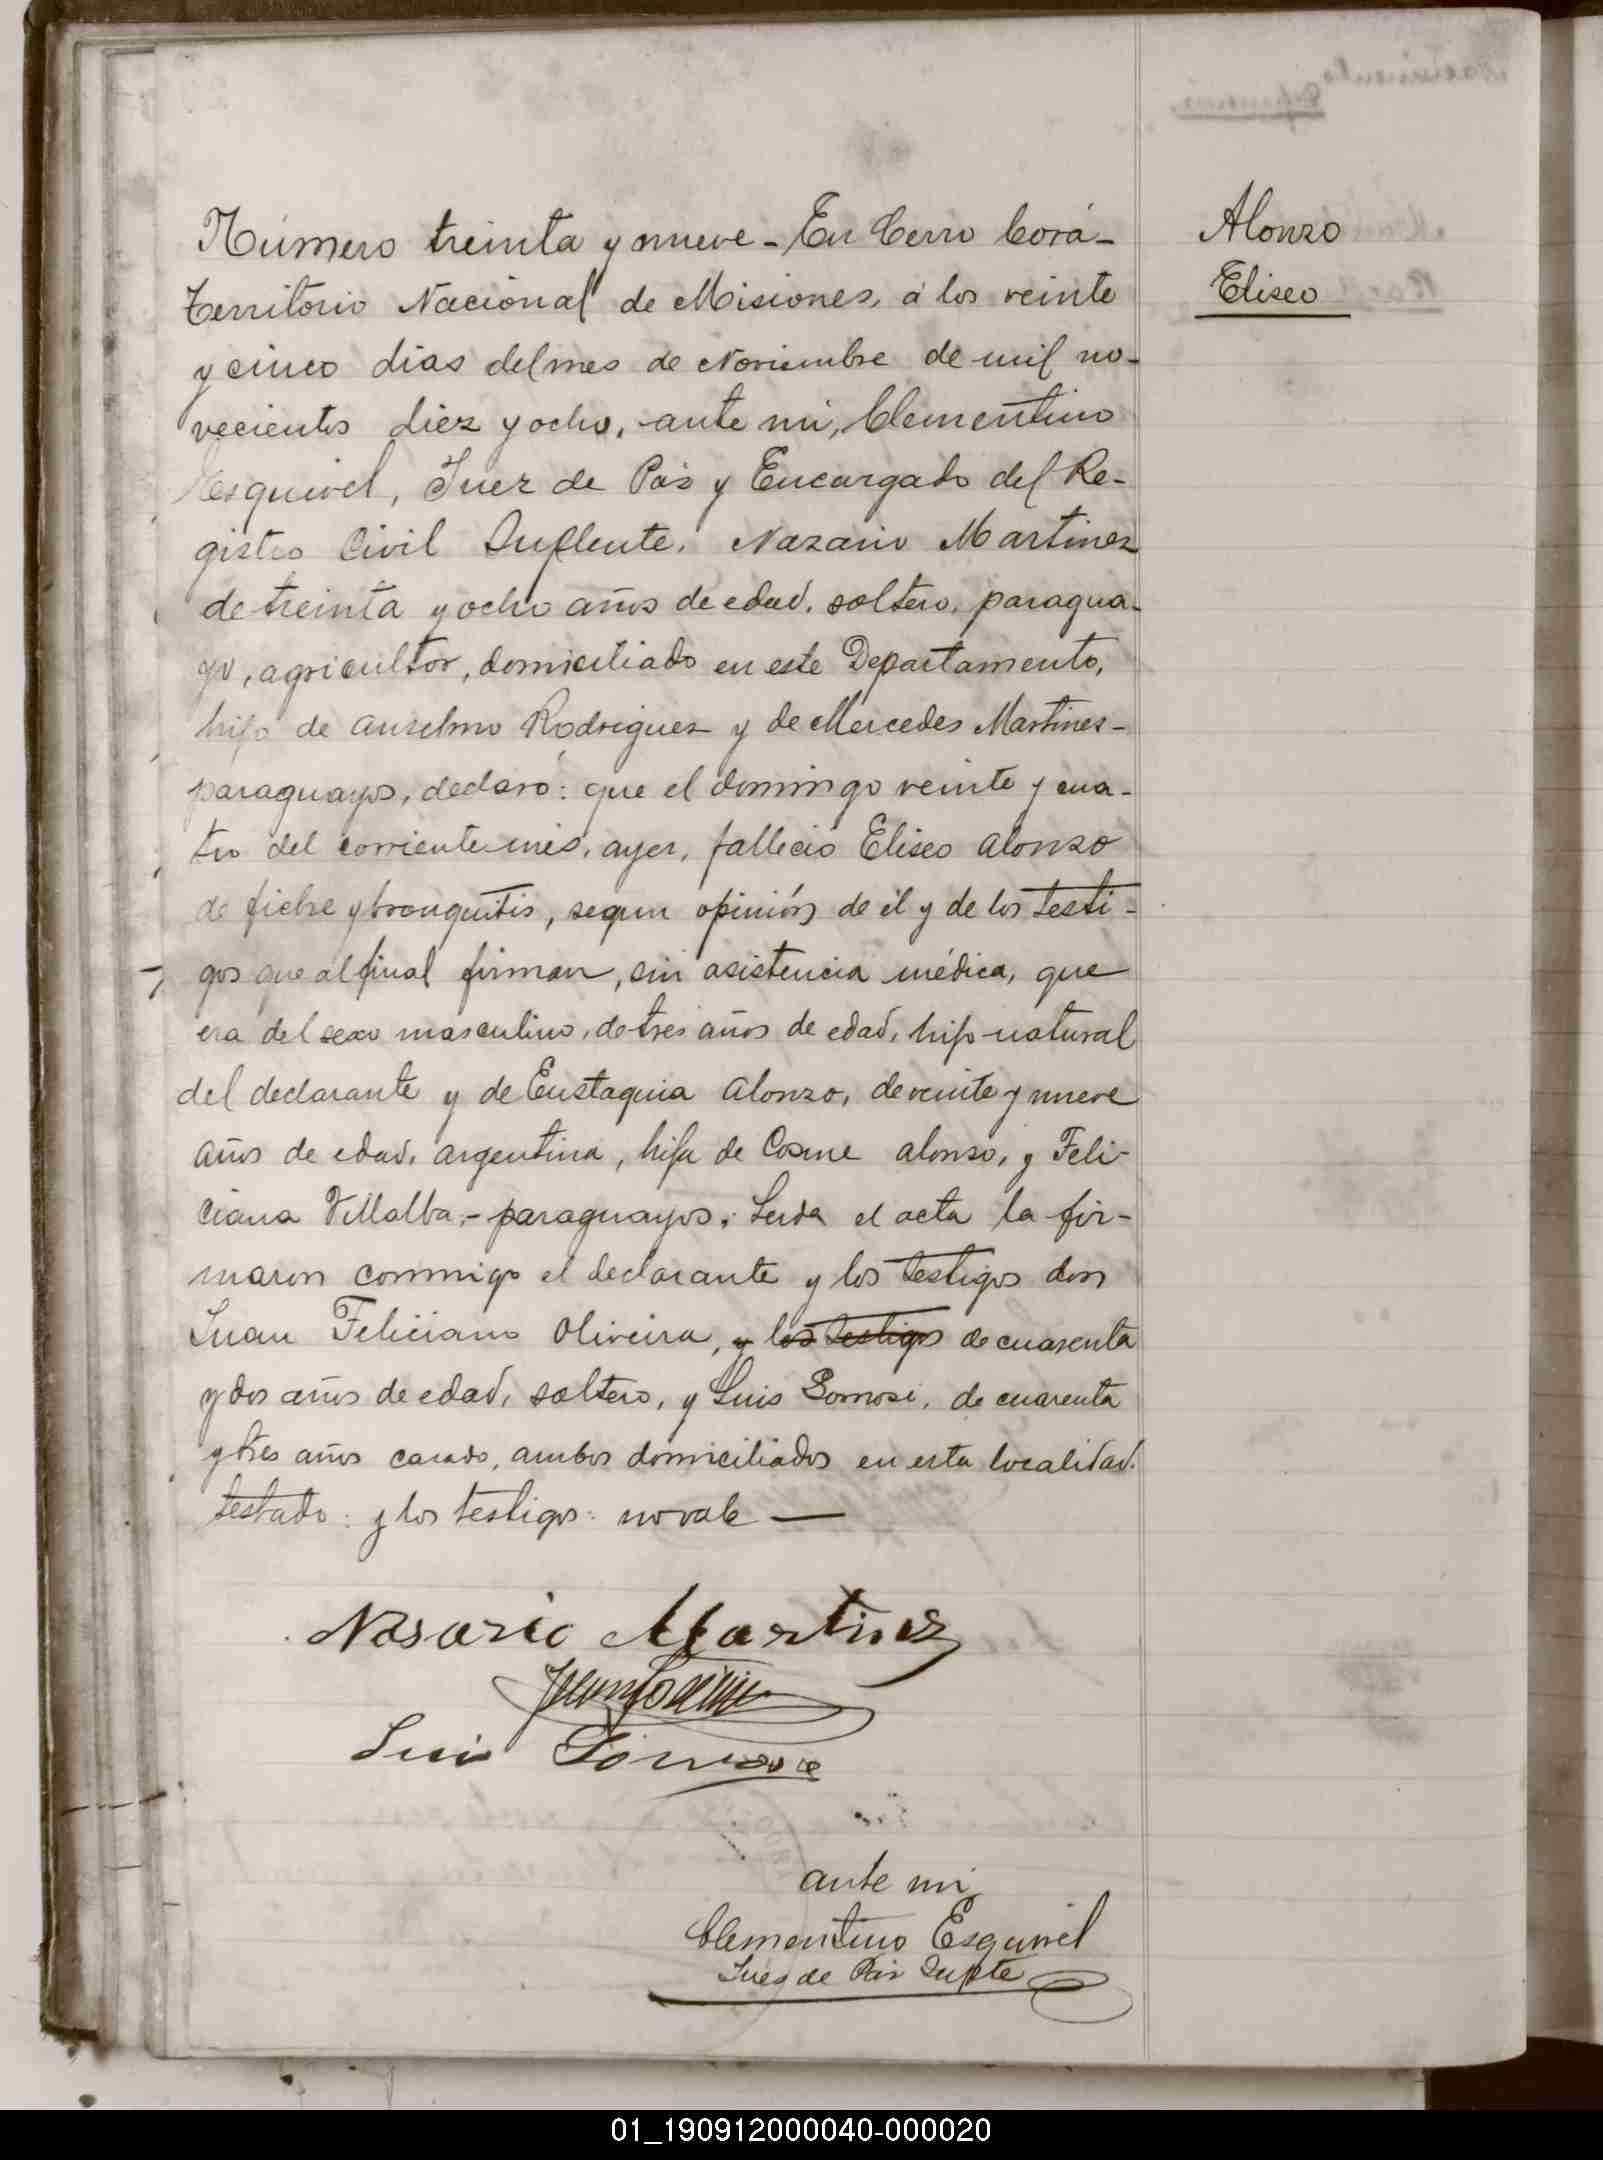 Número treinta y nueve - En Cerro Corá -
Territorio Nacional de Misiones, á los veinte
y cinco dias del mes de Noviembre de mil no-
vecientos diez y ocho, ante mi, Clementino
Esquivel, Juez de Paz y Encargado del Re-
gistro Civil Suplente. Nazario Martinez
de treinta y ocho años de edad, soltero, paragua-
yo, agricultor, domiciliado en este Departamento,
hijo de Anselmo Rodriguez y de Mercedes Martines -
paraguayos, declaró: que el domingo veinte y cua-
tro del corriente mes, ayer, fallecio Eliseo Alonzo
de fiebre y bronquitis, segun opinión de él y de los testi-
gos que al final firman, sin asistencia médica, que
era del sexo masculino, de tres años de edad, hijo natural
del declarante y de Eustaquia Alonzo, de veinte y nueve
años de edad, argentina, hija de Cosme Alonso, y Feli-
ciana Villalba, - paraguayos. Leida el acta la fir-
maron conmigo el declarante y los testigos don
Juan Feliciano Oliveira, y los testigos de cuarenta
y dos años de edad, soltero, y Luis Somosi, de cuarenta
y tres años casado, ambos domiciliados en esta localidad.
testado: y los testigos: no vale —
Nasario Martinez
Luis
ante mi
Clementino Esquivel
Juez de Paz Suplte
Alonzo
Eliseo
01_190912000040-000020